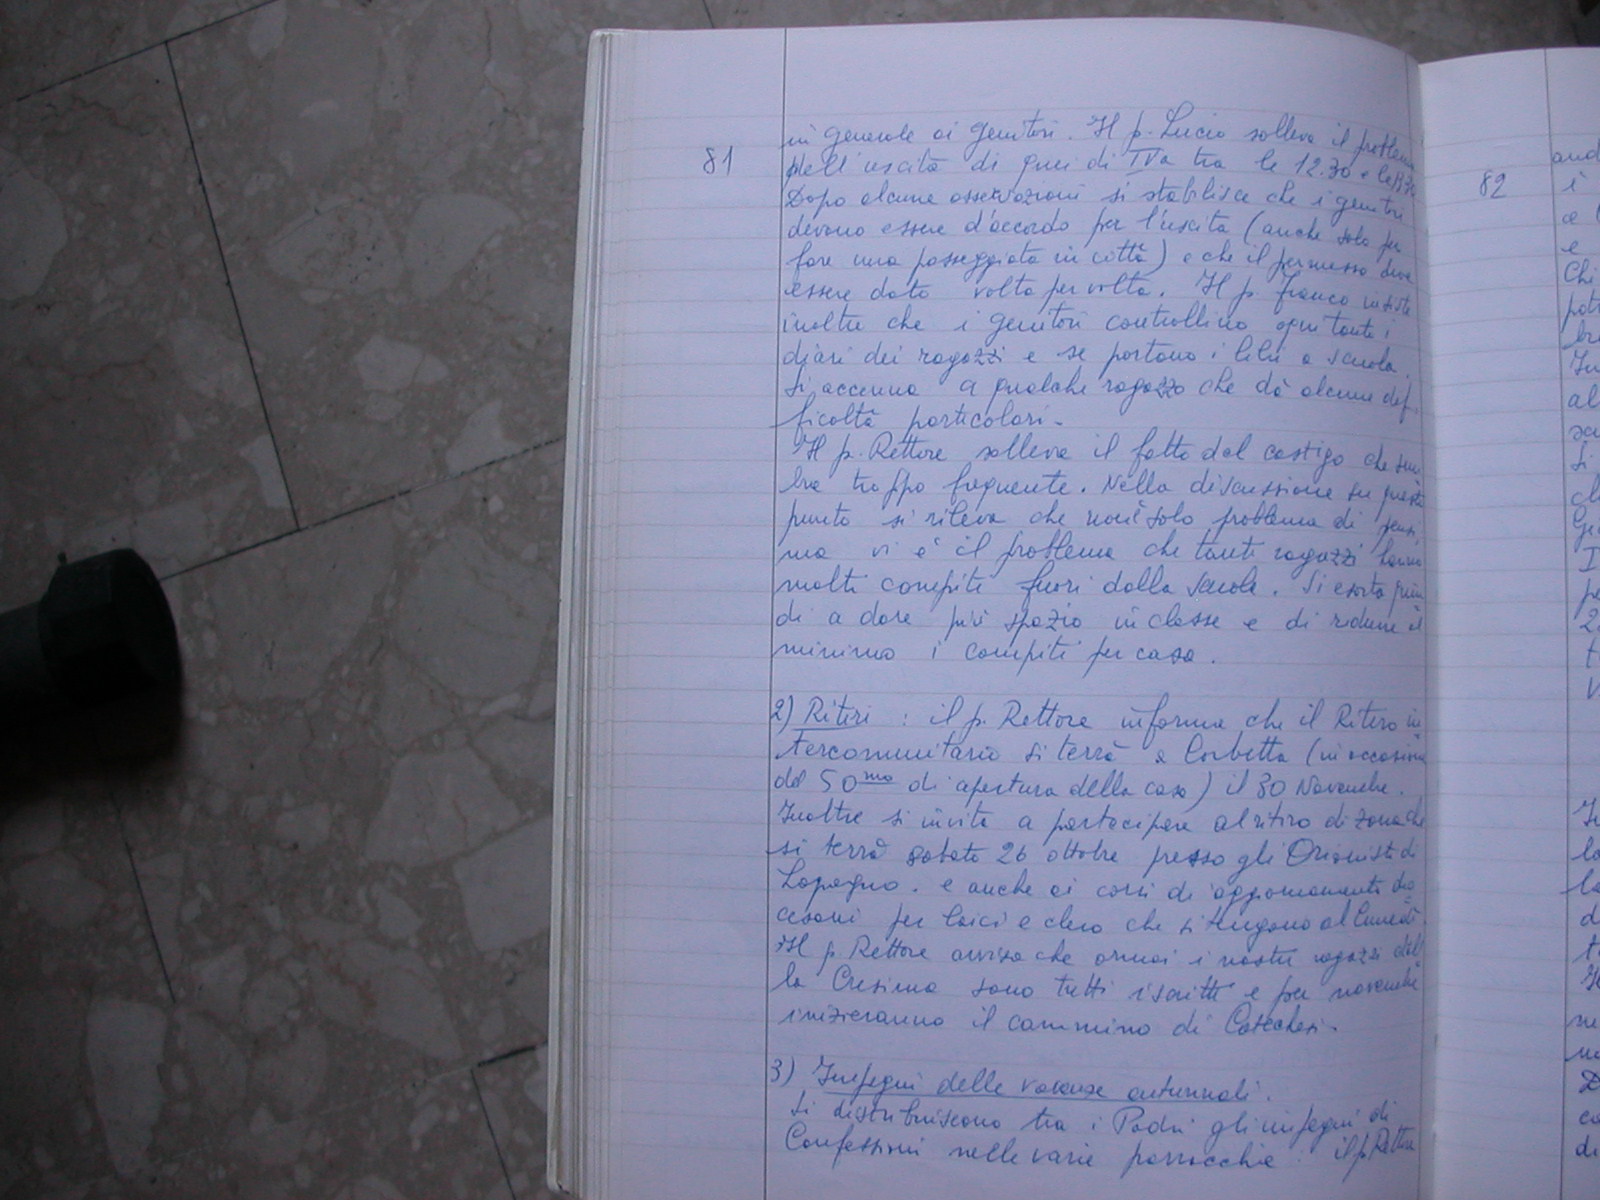 81
in generale ai genitori. Il p. Lucio solleva il problema
dell'uscita di quei di IVa tra le 12.30 e le
Dopo alcune osservazioni si stabilisce che i genitori
devono essere d'accordo per l'uscita (anche solo per
fare una passeggiata in città) e che il permesso deve
essere dato volta per volta. Il p. franco insiste
inoltre che i genitori controllino ogni tanto i
diari dei ragazzi e se portano i libri a scuola.
Si accenna a qualche ragazzo che dà alcune dif-
ficoltà particolari.
Il p. Rettore solleva il fatto del castigo che sem
bra troppo frequente. Nella discussione su questo
punto si rileva che non è solo problema di
ma vi è il problema che tanti ragazzi hanno
molti compiti fuori dalla Scuola. Si esorta quin
di a dare più spazio in classe e di ridurre al
minimo i compiti per casa.
2) Ritiri : il p. Rettore informa che il Ritiro in
tercomunitario si terrà a Corbetta (in occasione
del 50mo di apertura della casa) il 30 Novembre.
Inoltre si invita a partecipare al ritiro di zona che
si terrà sabato 26 ottobre presso gli Orionisti di
Lopagno. e anche ai corsi di aggiornamento dio=
cesani per laici e clero che si tengono al
Il p. Rettore avvisa che ormai i nostri ragazzi del
la Cresima sono tutti iscritti e per novembre
inizieranno il cammino di Catechesi.
3) Impegni delle vacanze autunnali.
Si distribuiscono tra i Padri gli impegni di
Confessioni nelle varie parrocchie : il p. Rettore
82